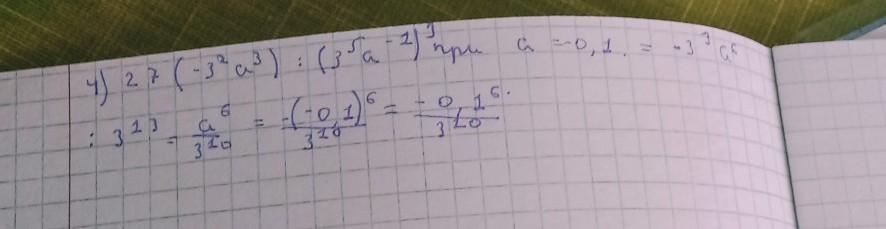 4) 27 (-3²a³) : (3⁵a⁻¹)³ при a = -0,1. = -3³a⁶
: 3¹³ = a⁶/3¹⁰ = -(-0,1)⁶/3¹⁰ = -0,1⁶/3¹⁰.